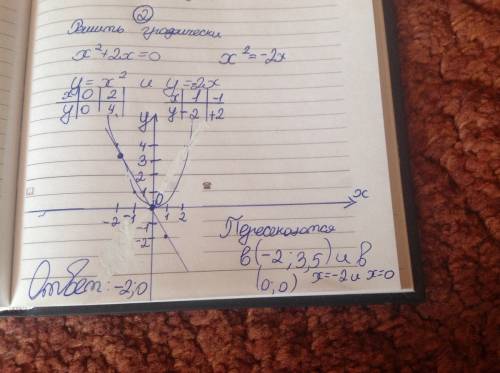 ②
Решить графически
x²+2x=0 x²=-2x
y=x² и y=2x
x 0 2 x 1 -1
y 0 4 y -2 +2
y
4
3
2
1
0
x
-2 -1 1 2
-1
-2
Пересекаются
в (-2; 3,5) и в
(0; 0) x=-2 и x=0
Ответ: -2; 0